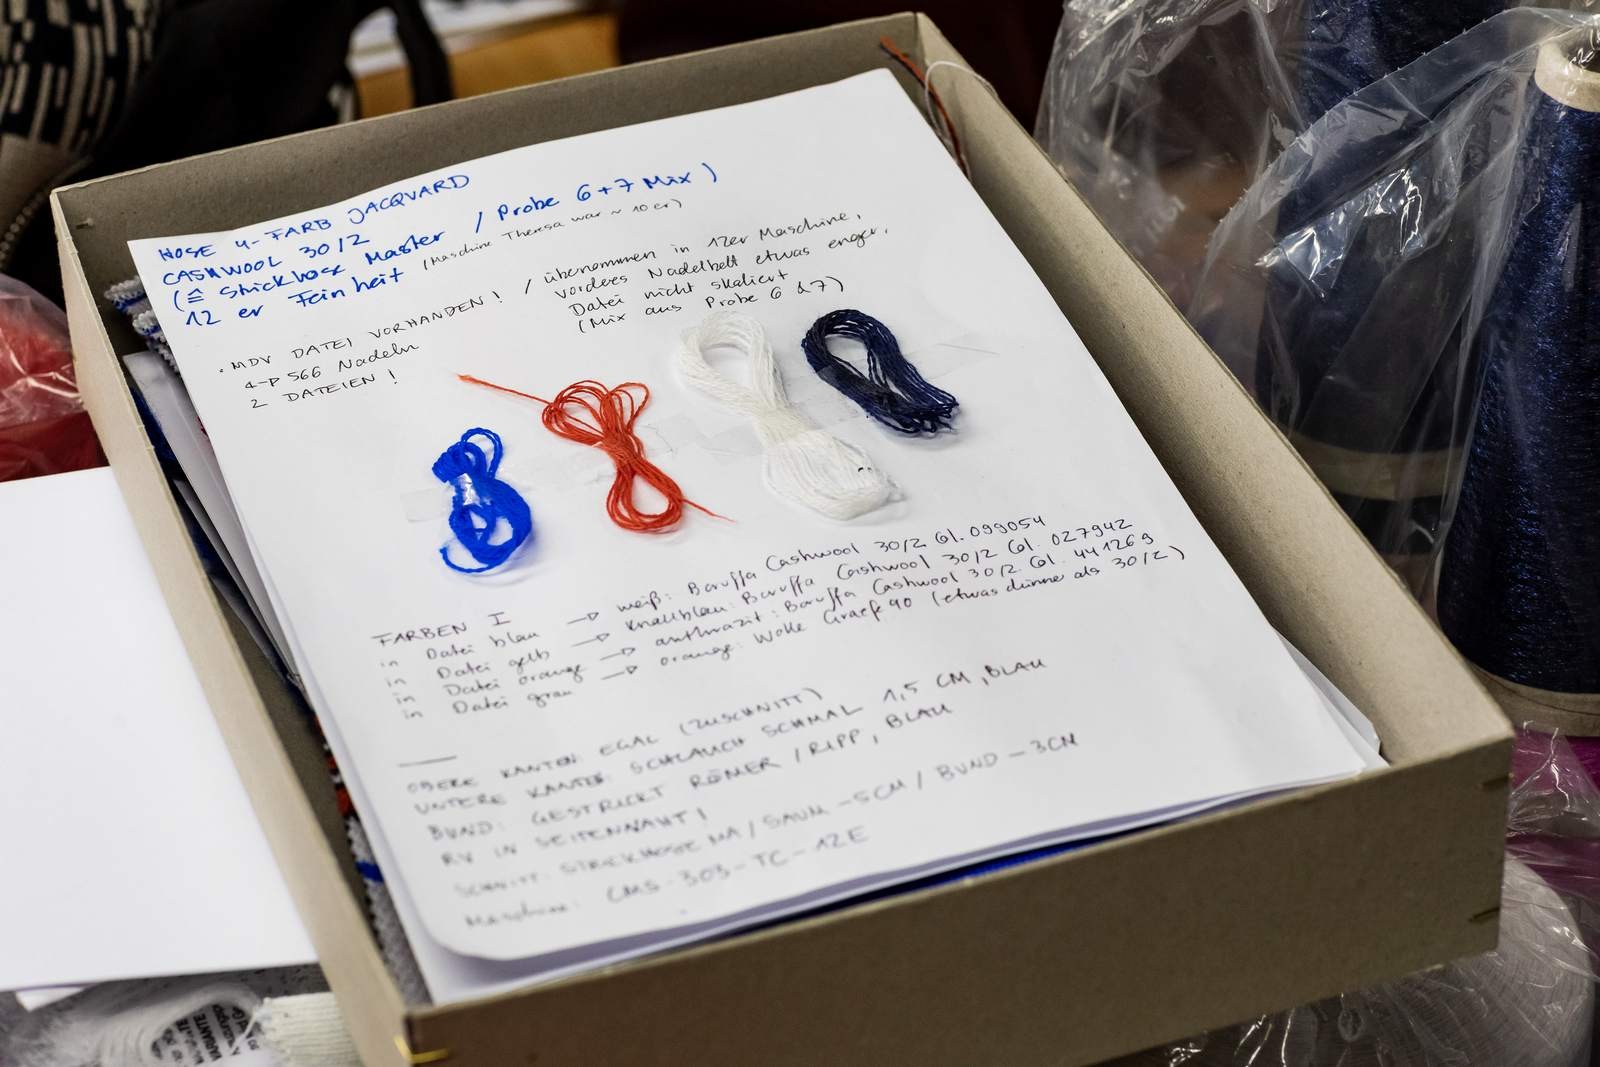 HOSE 4-FARB JACQUARD
CASHWOOL 30/2
(≙ Strickhose Master / Probe 6+7 Mix)
12 er Feinheit (Maschine Theresa war ~ 10er)
• MDV DATEI VORHANDEN! / übernommen in 12er Maschine,
4-P 566 Nadeln
2 DATEIEN!
vorderes Nadelbett etwas enger,
Datei nicht skaliert
(Mix aus Probe 6 & 7)
FARBEN I
in Datei blau → weiß: Baruffa Cashwool 30/2 Col. 099054
in Datei gelb → knallblau: Baruffa Cashwool 30/2 Col. 027942
in Datei orange → anthrazit: Baruffa Cashwool 30/2 Col. 441269
in Datei grau → orange: Wolle Graefe 40 (etwas dünner als 30/2)
OBERE KANTEN EGAL (ZUSCHNITT)
UNTERE KANTEN: SCHLAUCH SCHMAL 1,5 CM, BLAU
BUND: GESTRICKT RÖMER / RIPP, BLAU
RV IN SEITENNAHT!
SCHNITT: STRICKHOSE MA / SAUM -5CM / BUND -3CM
Maschine: CMS-303-TC-12E
VARIANTE